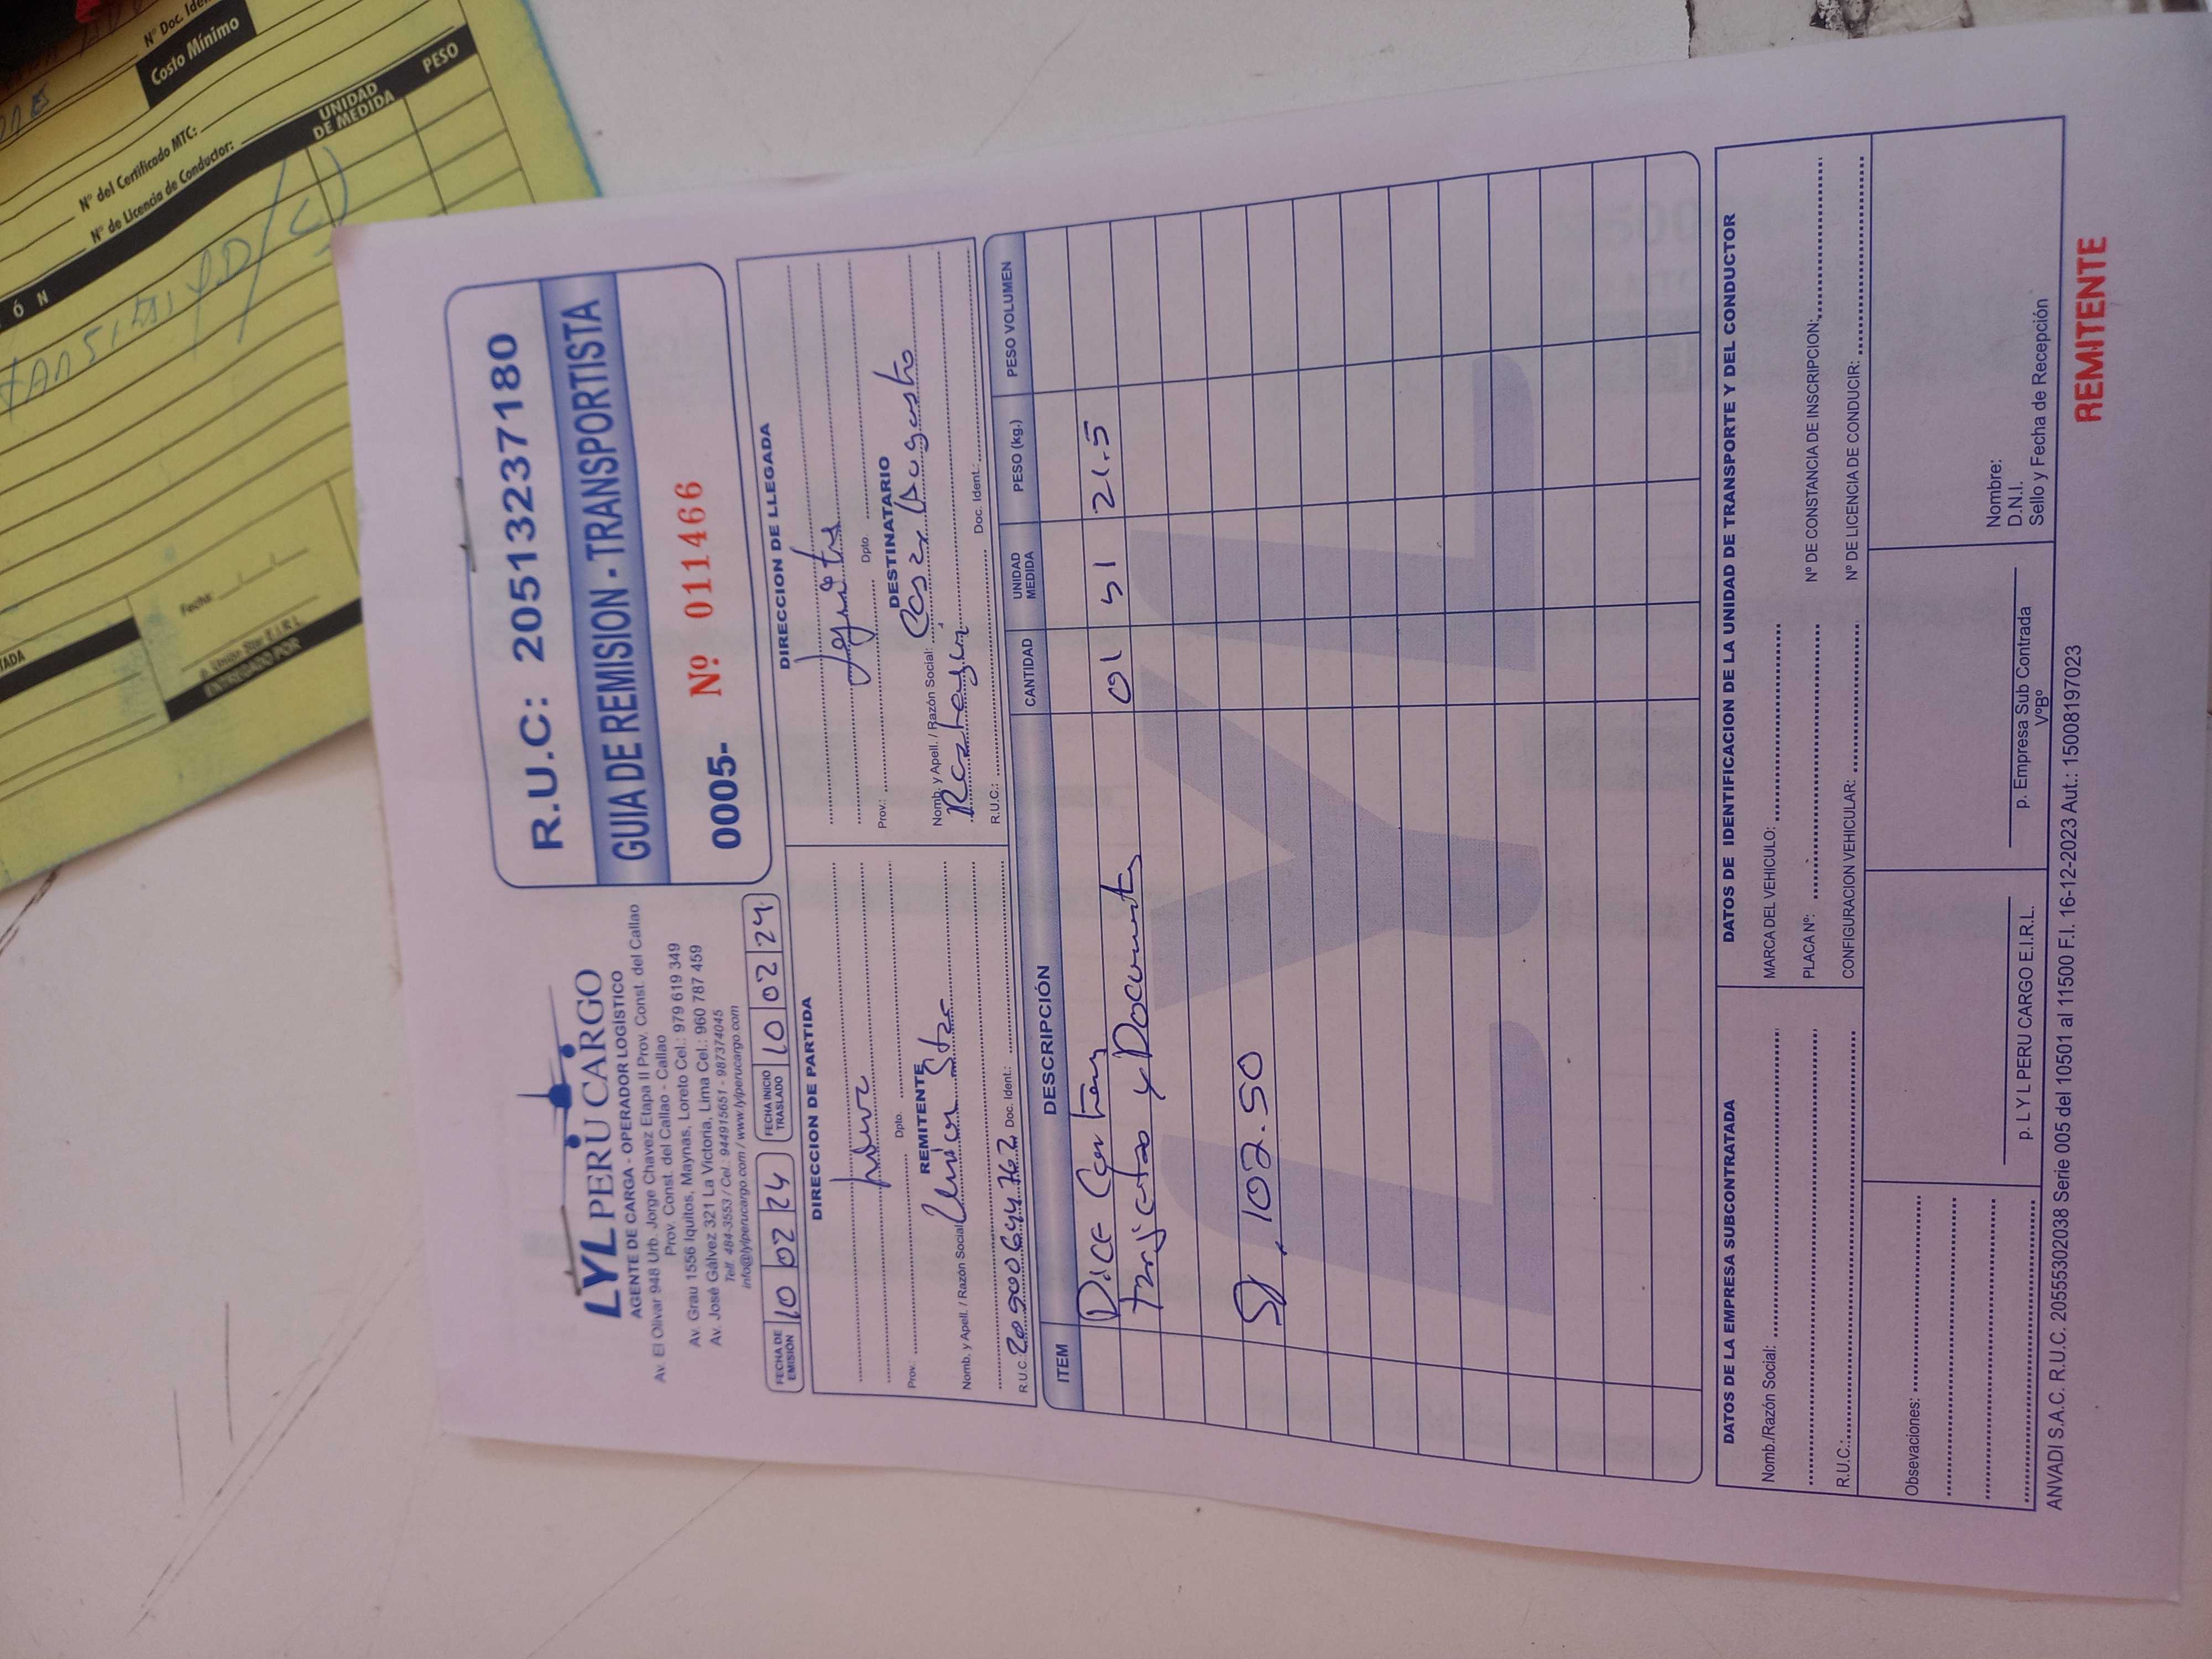 LYL PERÚ CARGO
AGENTE DE CARGA - OPERADOR LOGÍSTICO
Av. El Olivar 948 Urb. Jorge Chavez Etapa II Prov. Const. del Callao
Prov. Const. del Callao - Callao
Av. Grau 1556 Iquitos, Maynas, Loreto Cel.: 979 619 349
Av. José Gálvez 321 La Victoria, Lima Cel.: 960 787 459
Telf. 484-3553 / Cel.: 944915651 - 987374045
info@lylperucargo.com / www.lylperucargo.com
R.U.C: 20513237180
GUIA DE REMISION - TRANSPORTISTA
0005- Nº 011466
FECHA DE EMISIÓN 10 02 24 FECHA INICIO TRASLADO 10 02 24
DIRECCION DE PARTIDA
Prov.: Dpto.
REMITENTE
Nomb. y Apell. / Razón Social Union Star
R.U.C. Doc. Ident.:
DIRECCION DE LLEGADA
Iquitos
Prov.: Dpto.
DESTINATARIO
Nomb. y Apell. / Razón Social: Augusto
R.U.C.: Doc. Ident.:
ITEM DESCRIPCIÓN CANTIDAD UNIDAD MEDIDA PESO (kg.) PESO VOLUMEN
Dice Contener 01 21.5
y Documentos
S/. 102.50
LYL
DATOS DE LA EMPRESA SUBCONTRATADA
Nomb./Razón Social:
R.U.C.:
DATOS DE IDENTIFICACION DE LA UNIDAD DE TRANSPORTE Y DEL CONDUCTOR
MARCA DEL VEHICULO:
PLACA Nº: Nº DE CONSTANCIA DE INSCRIPCION:
CONFIGURACION VEHICULAR: Nº DE LICENCIA DE CONDUCIR:
Obsevaciones:
p. L Y L PERU CARGO E.I.R.L.
p. Empresa Sub Contrada
VºBº
Nombre:
D.N.I.
Sello y Fecha de Recepción
ANVADI S.A.C. R.U.C. 20555302038 Serie 005 del 10501 al 11500 F.I. 16-12-2023 Aut.: 15008197023
REMITENTE
Nº Doc. Iden
Costo Mínimo
Nº del Certificado MTC:
Nº de Licencia de Conductor:
Ó N
UNIDAD DE MEDIDA
PESO
TADA
Fecha:
p. Unión Star E.I.R.L.
ENTREGADO POR